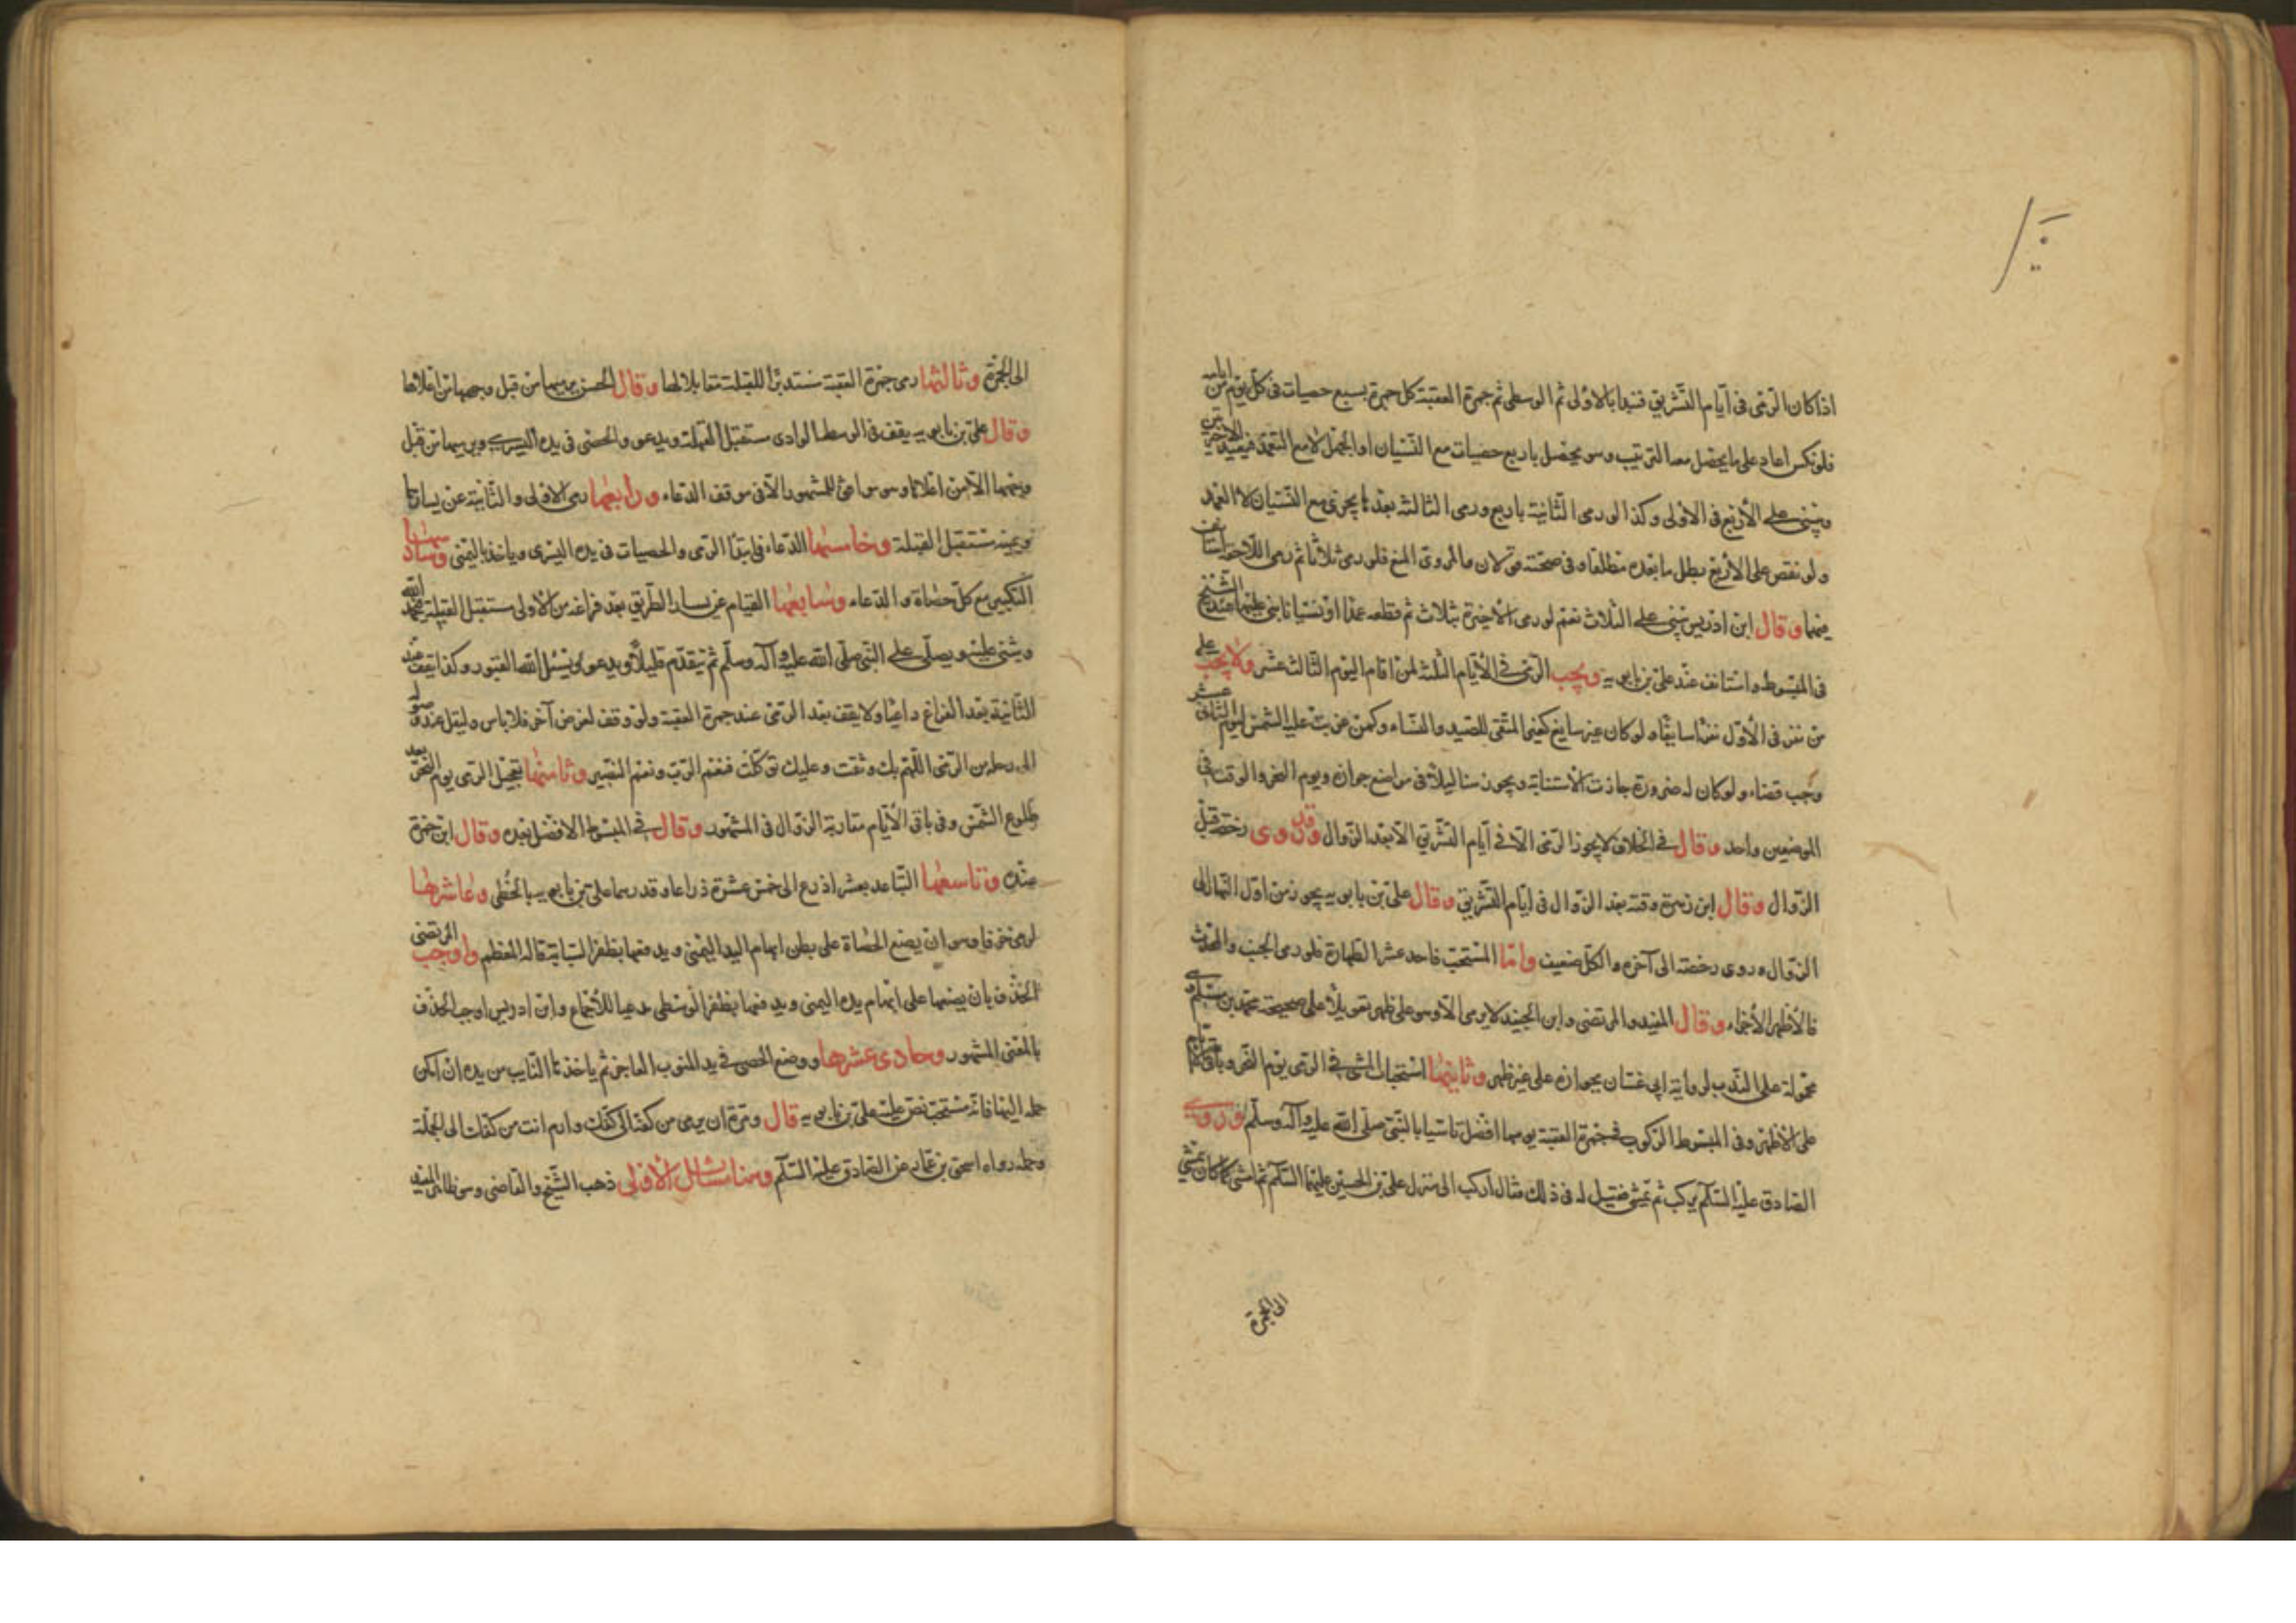 اذا كان الرمى فى ايام التشريق فتبدا بالاولى ثم الوسطى ثم جمرة العقبة كل جمرة بسبع حصيات فى كل يوم من ايامه
فلو نكس اعاد على ما يحصل معه الترتيب وهو يحصل باربع حصيات مع النسيان او الجهل لا مع التعمد فيعيد الاخيرتين
ويبنى على الاربع فى الاولى وكذا لو رمى الثانية باربع ورمى الثالثة بعدها يجزى مع النسيان لا العمد
ولو نقص على الاربع بطل ما بعده مطلقا وفى صحته قولان والمروى المنع فلو رمى ثلاثا ثم رمى اللاحقة استانف
فيهما وقال ابن ادريس يبنى على الثلاث نعم لو رمى الاخيرة بثلاث ثم قطعه عمدا او نسيانا بنى عليها عند الشيخ
فى المبسوط واستانف عند على بن بابويه ويجب الرمى فى الايام الثلثة لمن اقام اليوم الثالث عشر ولا يجب على
من نفر فى الاول نفرا سايغا ولو كان غير سايغ كغير المتقى للصيد والنساء وكمن غربت عليه الشمس ليوم الثانى عشر
وجب قضاء ولو كان له ضرورة جازت الاستنابة ويجوز هنا ليلا فى مواضع جوازه ويوم النحر والوقت فى
الموضعين واحد وقال فى الخلاف لا يجوز الرمى الا فى ايام التشريق الا بعد الزوال وقد روى رخصة قبل
الزوال وقال ابن زهرة وقته بعد الزوال فى ايام التشريق وقال على بن بابويه يجوز من اول النهار الى
الزوال وروى رخصته الى آخره والكل ضعيف واما المستحب فاحد عشر الطهارة فلو رمى الجنب والمحدث
فالاظهر الاجزاء وقال المفيد والمرتضى وابن الجنيد لا يرمى الا وهو على طهر تعويلا على صحيحة محمد بن مسلم وهى
محمولة على الندب لرواية ابى غسان بجوازه على غير طهر وثانيها استحباب المشى فى الرمى يوم النحر وباقى الايام
على الاظهر وفى المبسوط الركوب فى جمرة العقبة يومها افضل تاسيا بالنبى صلى الله عليه وآله وسلم وروى
الصادق عليه السلام يركب ثم يمشى فقيل له فى ذلك فقال اركب الى منزل على بن الحسين عليهما السلام ثم امشى كما كان يمشى
الى الجمرة
الى الجمرة وثالثها رمى جمرة العقبة مستدبرا للقبلة مقابلا لها وقال الحسن يرميها من قبل وجهها من اعلاها
وقال على بن بابويه يقف فى الوسط الوادى مستقبل القبلة ويدعو والحصى فى يده اليسرى ويرميها من قبل
وجهها لا من اعلاها وهو موافق للمشهور الا فى موقف الدعاء ورابعها رمى الاولى والثانية عن يسارها
ويمينه مستقبل القبلة وخامسها الدعاء فى ابتداء الرمى والحصيات فى يده اليسرى وياخذ باليمنى وسادسها
التكبير مع كل حصاة والدعاء وسابعها القيام عن يسار الطريق بعد فراغه من الاولى مستقبل القبلة يحمد الله
ويثنى عليه ويصلى على النبى صلى الله عليه وآله وسلم ثم يتقدم قليلا ويدعو ويسئل الله القبول وكذا يقف عند
الثانية بعد الفراغ داعيا ولا يقف بعد الرمى عند جمرة العقبة ولو وقف لغرض آخر فلا باس وليقل عند وصوله
الى رحله من الرمى اللهم بك وثقت وعليك توكلت فنعم الرب ونعم النصير وثامنها تعجيل الرمى يوم النحر بعد
طلوع الشمس وفى باقى الايام مقاربة الزوال فى المشهور وقال فى المبسوط الافضل بعده وقال ابن حمزة
عنده وتاسعها التباعد بعشر اذرع الى خمس عشرة ذراعا وقدرهما على بن بابويه بالخطى وعاشرها
لرمى خذفا وهو ان يضع الحصاة على بطن ابهام اليد اليمنى ويدفعها بظفر السبابة قاله المعظم واوجب المرتضى
الخذف بان يضعها على ابهام يده اليمنى ويدفعها بظفر الوسطى مدعيا للاجماع وابن ادريس اوجب الخذف
بالمعنى المشهور وحادى عشرها ووضع الحصى فى يد المنوب العاجز ثم ياخذها النايب من يده ان امكن
حمله اليها فانه مستحب نص عليه على بن بابويه قال ومره ان يرمى من كفه الى كفك وارم انت من كفك الى الجملة
وحمله رواه اسحق بن عمار عن الصادق عليه السلام وهنا مسائل الاولى ذهب الشيخ والقاضى وهو ظاهر المفيد